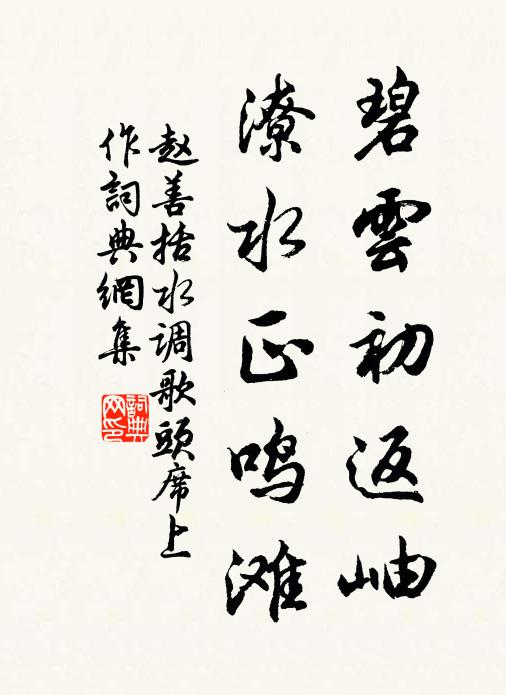 碧雲初返岫
潦水正鸣滩
赵善括水调歌頭席上
作詞典網集
詞典
网印